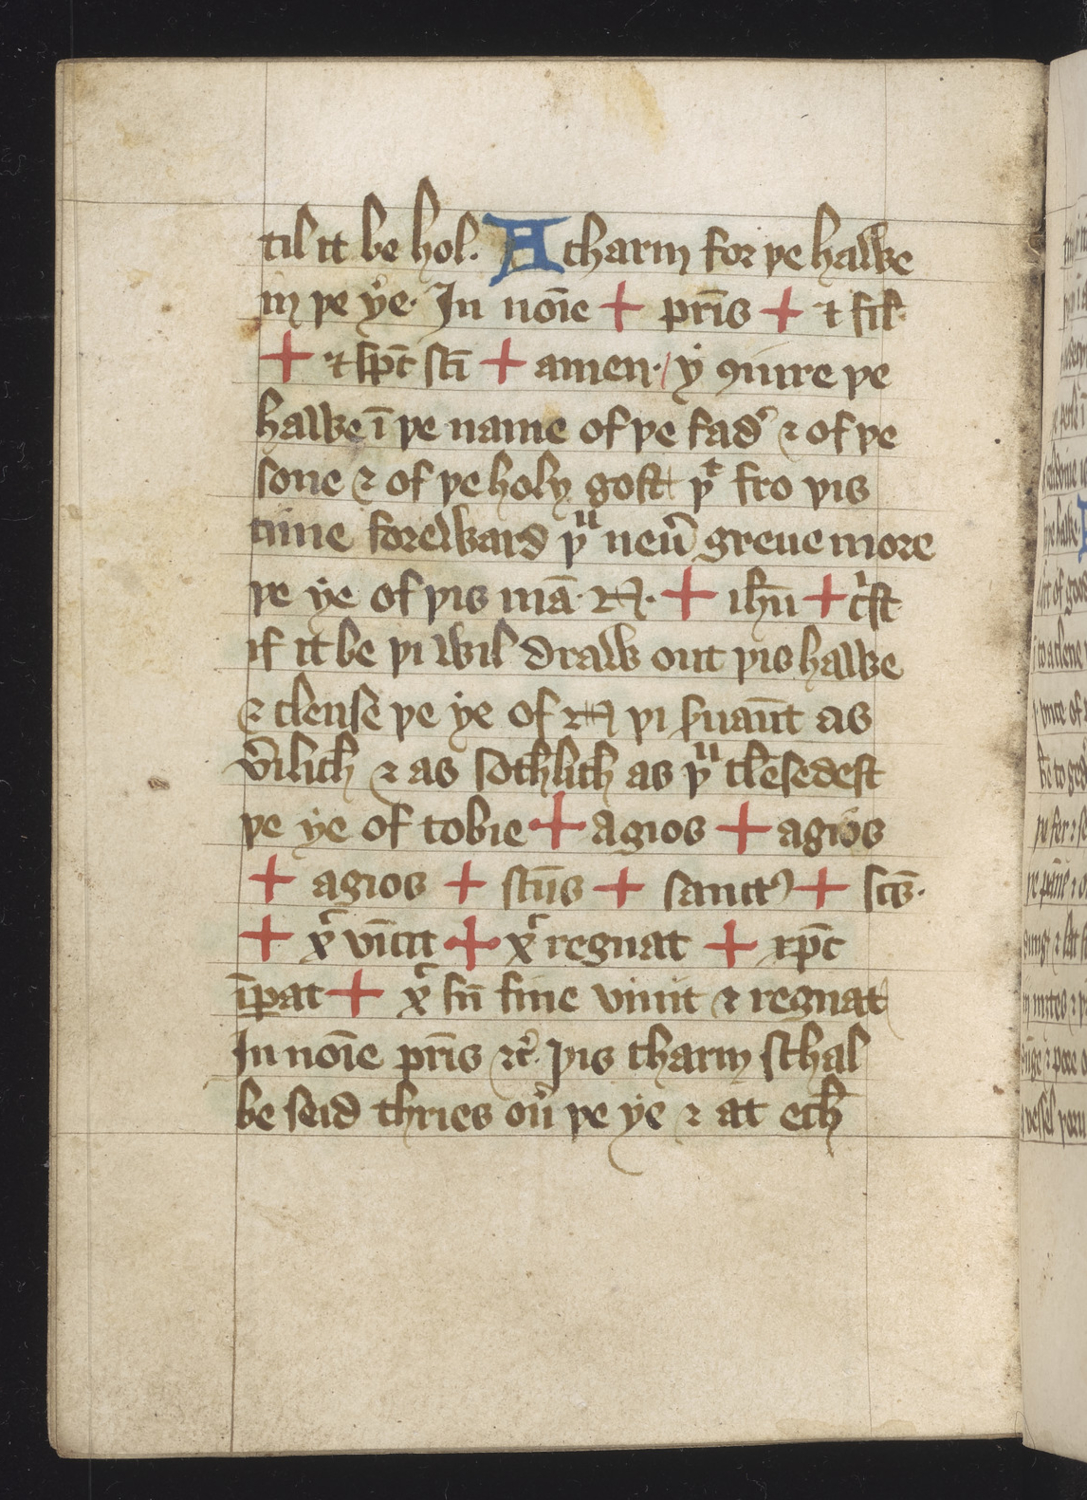 til it be hol. A charm for þe hawe
in þe yͤe. In noīe + pr̄is + ⁊ fil
+ ⁊ sp̄c sc̄i + amen. / y ꝯiure þe
hawe ī þe name of þe fadͬ ⁊ of þe
sone ⁊ of þe holy gost þͭ fro þis
time foreward þᵘ neu̾ greue more
þe ye of þis mā .N. + ih̄u + cͥst
if it be þi wil draw out þis hawe
⁊ clense þe ye of N þi s̾uaūt as
v̾ilich ⁊ as sothlich as þᵘ clēsedest
þe ye of tobie + agios + agios
+ agios + sc̄us + sanctꝰ + sc̄s.
+ xͬ vīcit + xͬ regnat + xp̄c
īꝑat + xͬ sn̄ fine viuit ⁊ regnat
In noīe pr̄is ⁊c̾. þis charm schal
be seid thries ou̾ þe ye ⁊ at ech